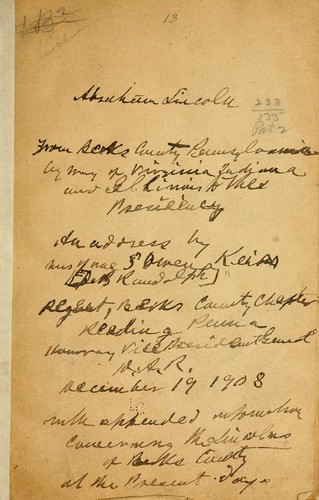 13
Abraham Lincoln
233
335
Part 2
From Berks County Pennsylvania
by way of Virginia Indiana
and Illinois to the
Presidency
An address by
de B Randolph]
Regent, Berks County Chapter
Reading Penna
Honorary Vice President General
D.A.R.
December 19 1908
with appended information
concerning the Lincolns
of Berks County
at the Present Day.